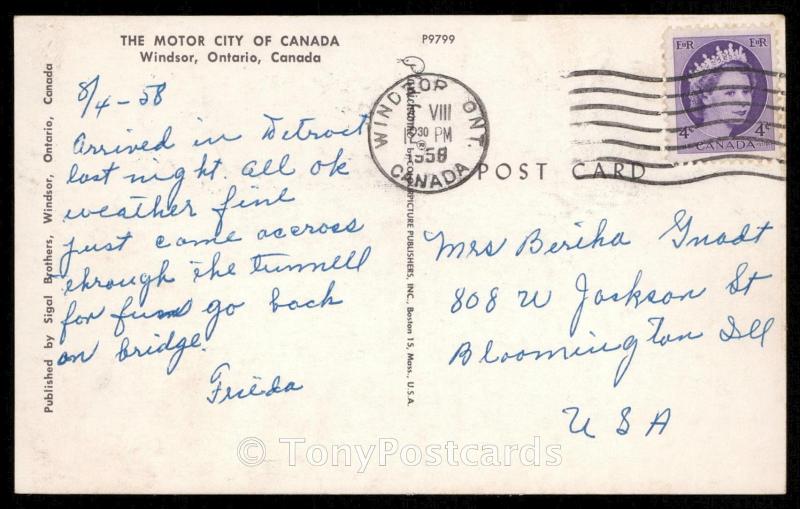 THE MOTOR CITY OF CANADA
Windsor, Ontario, Canada
P9799
8/4-58
Arrived in Detroit
last night. all ok
weather fine
just come accross
through the tunnell
for fun go back
on bridge.
Frieda
Published by Sigal Brothers, Windsor, Ontario, Canada
Plastichrome® by COLOURPICTURE PUBLISHERS, INC., Boston 15, Mass., U.S.A.
WINDSOR ONT.
VIII
30 PM
1958
CANADA
E II R E II R
4c 4c
CANADA
POST CARD
Mrs Bertha Gnadt
808 W Jackson St
Bloomington Ill
USA
© TonyPostcards